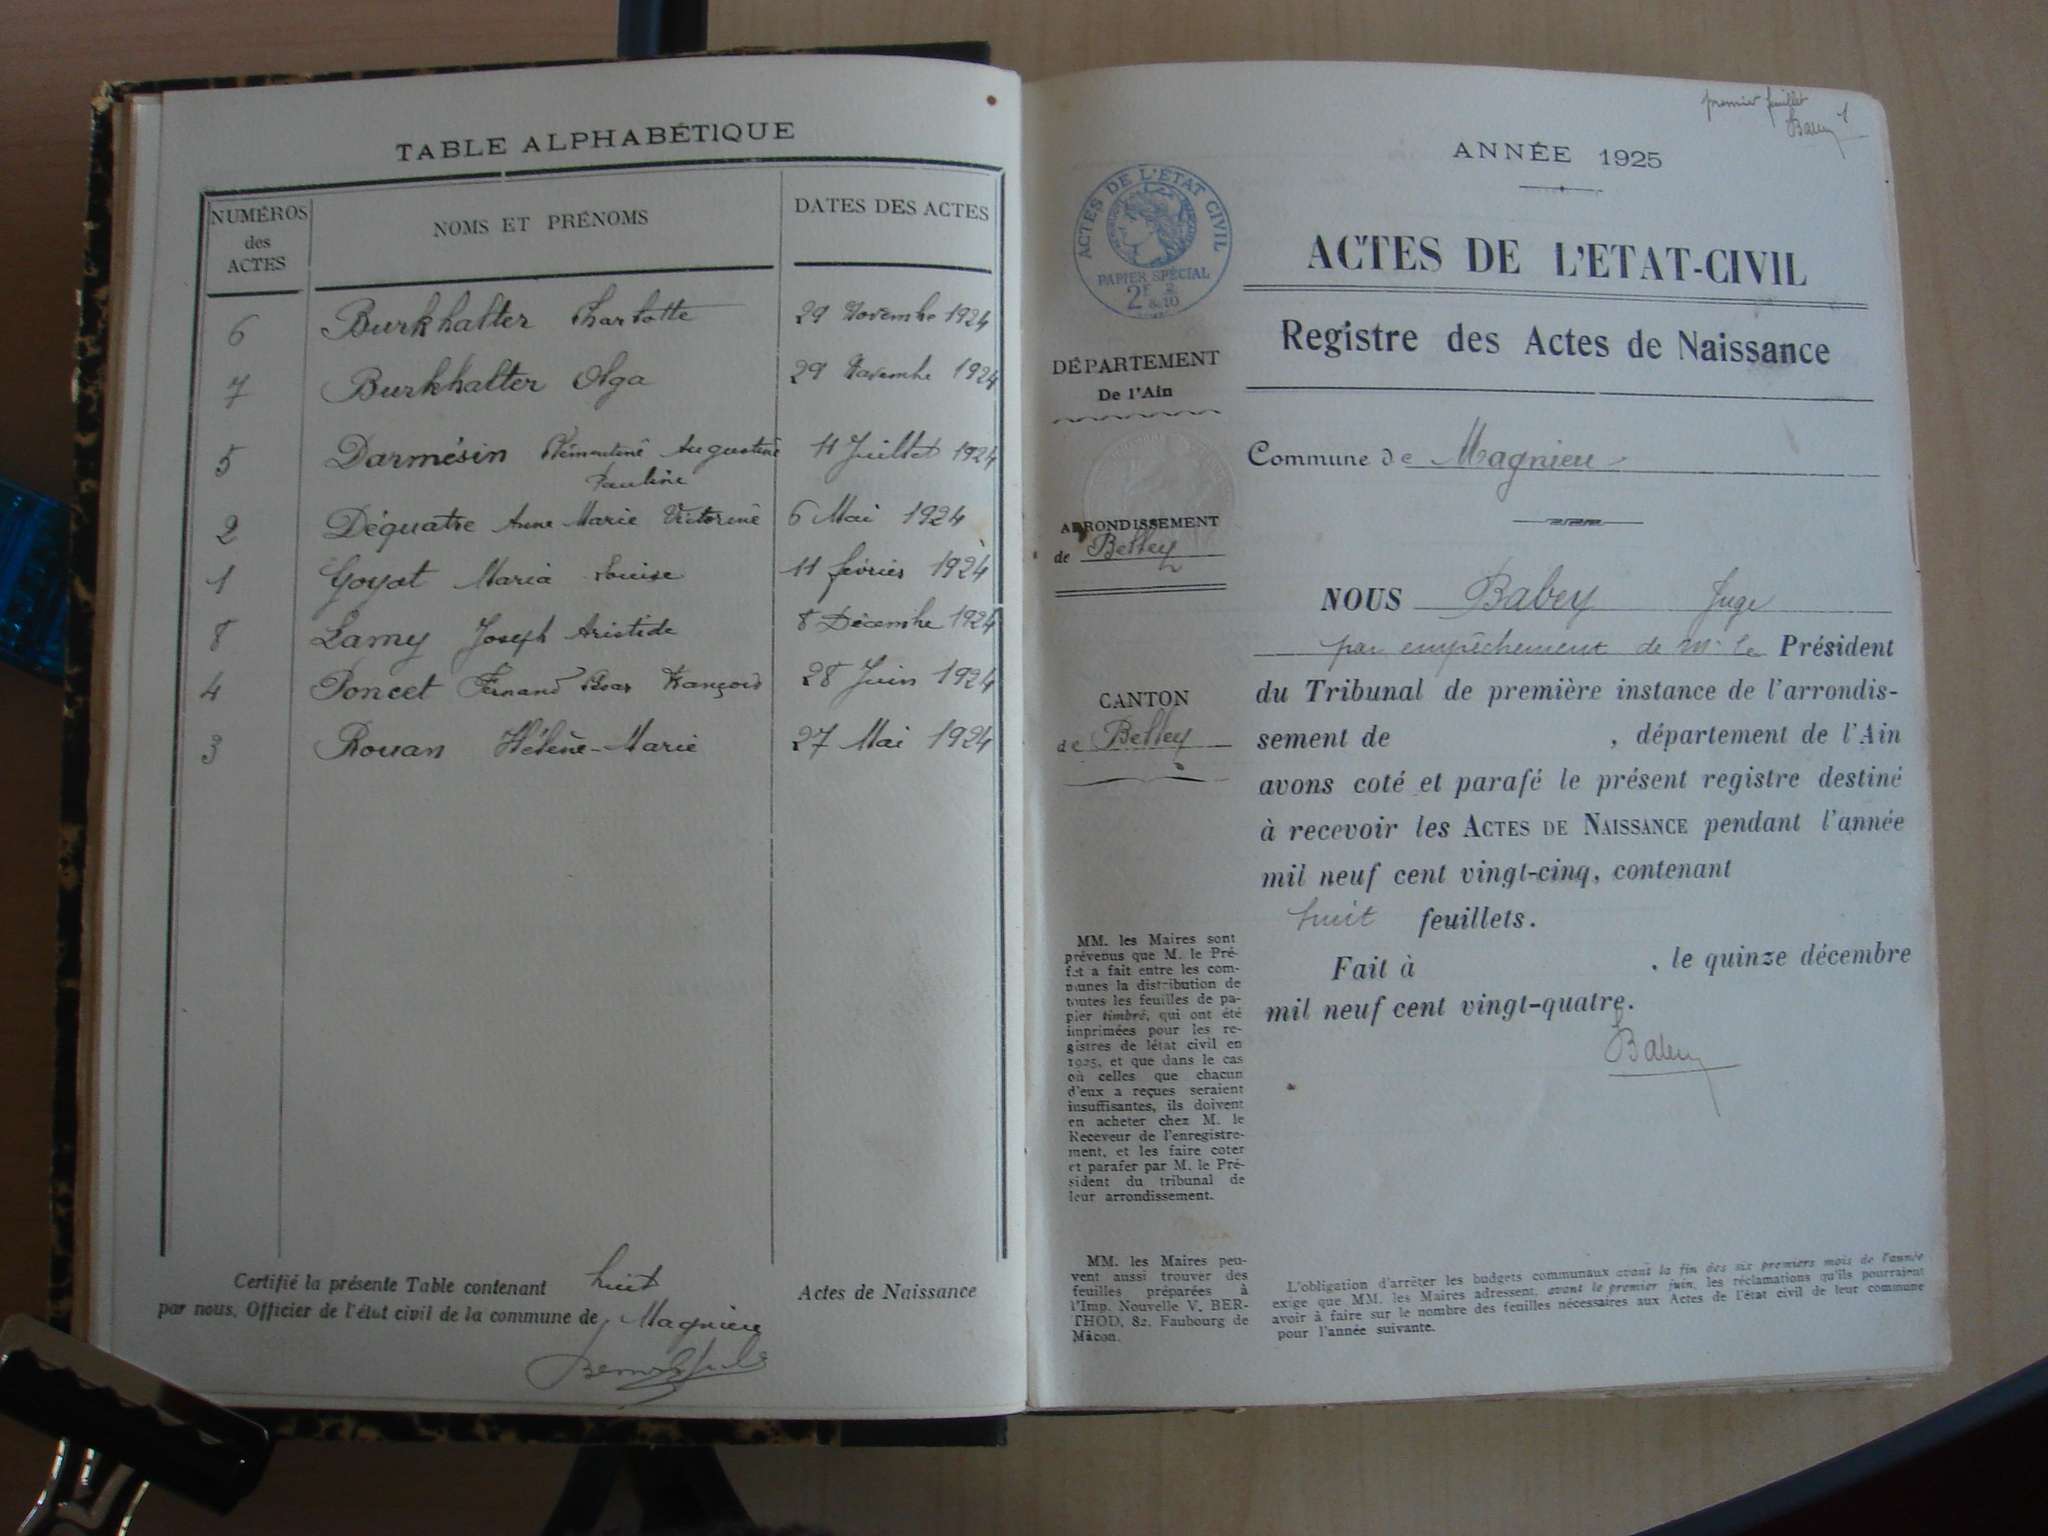 TABLE ALPHABÉTIQUE
NUMÉROS des ACTES
NOMS ET PRÉNOMS
DATES DES ACTES
6 Burkhalter Charlotte 29 Novembre 1924
7 Burkhalter Olga 29 Novembre 1924
5 Darmésin Clémentine Augustine 11 Juillet 1924
Pauline
2 Déquatre Anne Marie Victorine 6 Mai 1924
1 Goyat Maria Louise 11 février 1924
8 Lamy Joseph Aristide 8 Décembre 1924
4 Poncet Fernand François 28 Juin 1924
3 Rouan Hélène-Marie 27 Mai 1924
Certifié la présente Table contenant huit Actes de Naissance
par nous, Officier de l'état civil de la commune de Magnieu
premier feuillet 1
Babey
ANNÉE 1925
ACTES DE L'ÉTAT CIVIL
PAPIER SPÉCIAL
2F 2/10
ACTES DE L'ETAT-CIVIL
Registre des Actes de Naissance
DÉPARTEMENT
De l'Ain
Commune de Magnieu
ARRONDISSEMENT
de Belley
CANTON
de Belley
NOUS Babey Juge
par empêchement de Mr le Président
du Tribunal de première instance de l'arrondis-
sement de , département de l'Ain
avons coté et parafé le présent registre destiné
à recevoir les ACTES DE NAISSANCE pendant l'année
mil neuf cent vingt-cinq, contenant
huit feuillets.
Fait à , le quinze décembre
mil neuf cent vingt-quatre.
Babey
MM. les Maires sont
prévenus que M. le Pré-
fet a fait entre les com-
munes la distribution de
toutes les feuilles de pa-
pier timbré, qui ont été
imprimées pour les re-
gistres de létat civil en
1925, et que dans le cas
où celles que chacun
d'eux a reçues seraient
insuffisantes, ils doivent
en acheter chez M. le
Receveur de l'enregistre-
ment, et les faire coter
et parafer par M. le Pré-
sident du tribunal de
leur arrondissement.
MM. les Maires peu-
vent aussi trouver des
feuilles préparées à
l'Imp. Nouvelle V. BER-
THOD, 82, Faubourg de
Mâcon.
L'obligation d'arrêter les budgets communaux avant la fin des six premiers mois de l'année
exige que MM. les Maires adressent, avant le premier juin, les réclamations qu'ils pourraient
avoir à faire sur le nombre des feuilles nécessaires aux Actes de l'état civil de leur commune
pour l'année suivante.